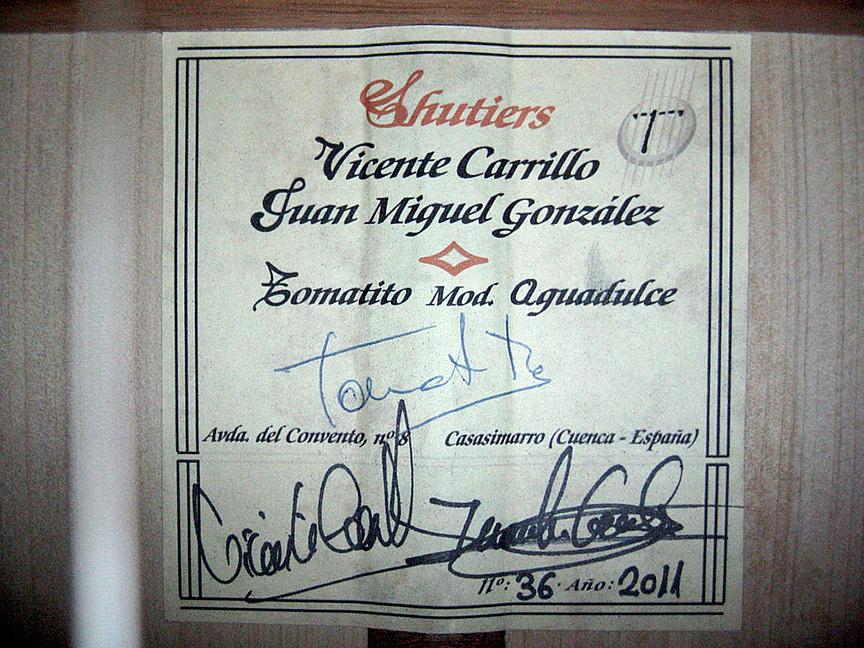 Shutiers
T
Vicente Carrillo
Juan Miguel González
Tomatito Mod. Aguadulce
Tomatito
Avda. del Convento, nº 8 Casasimarro (Cuenca - España)
Vicente Carrillo
Nº: 36 - Año: 2011